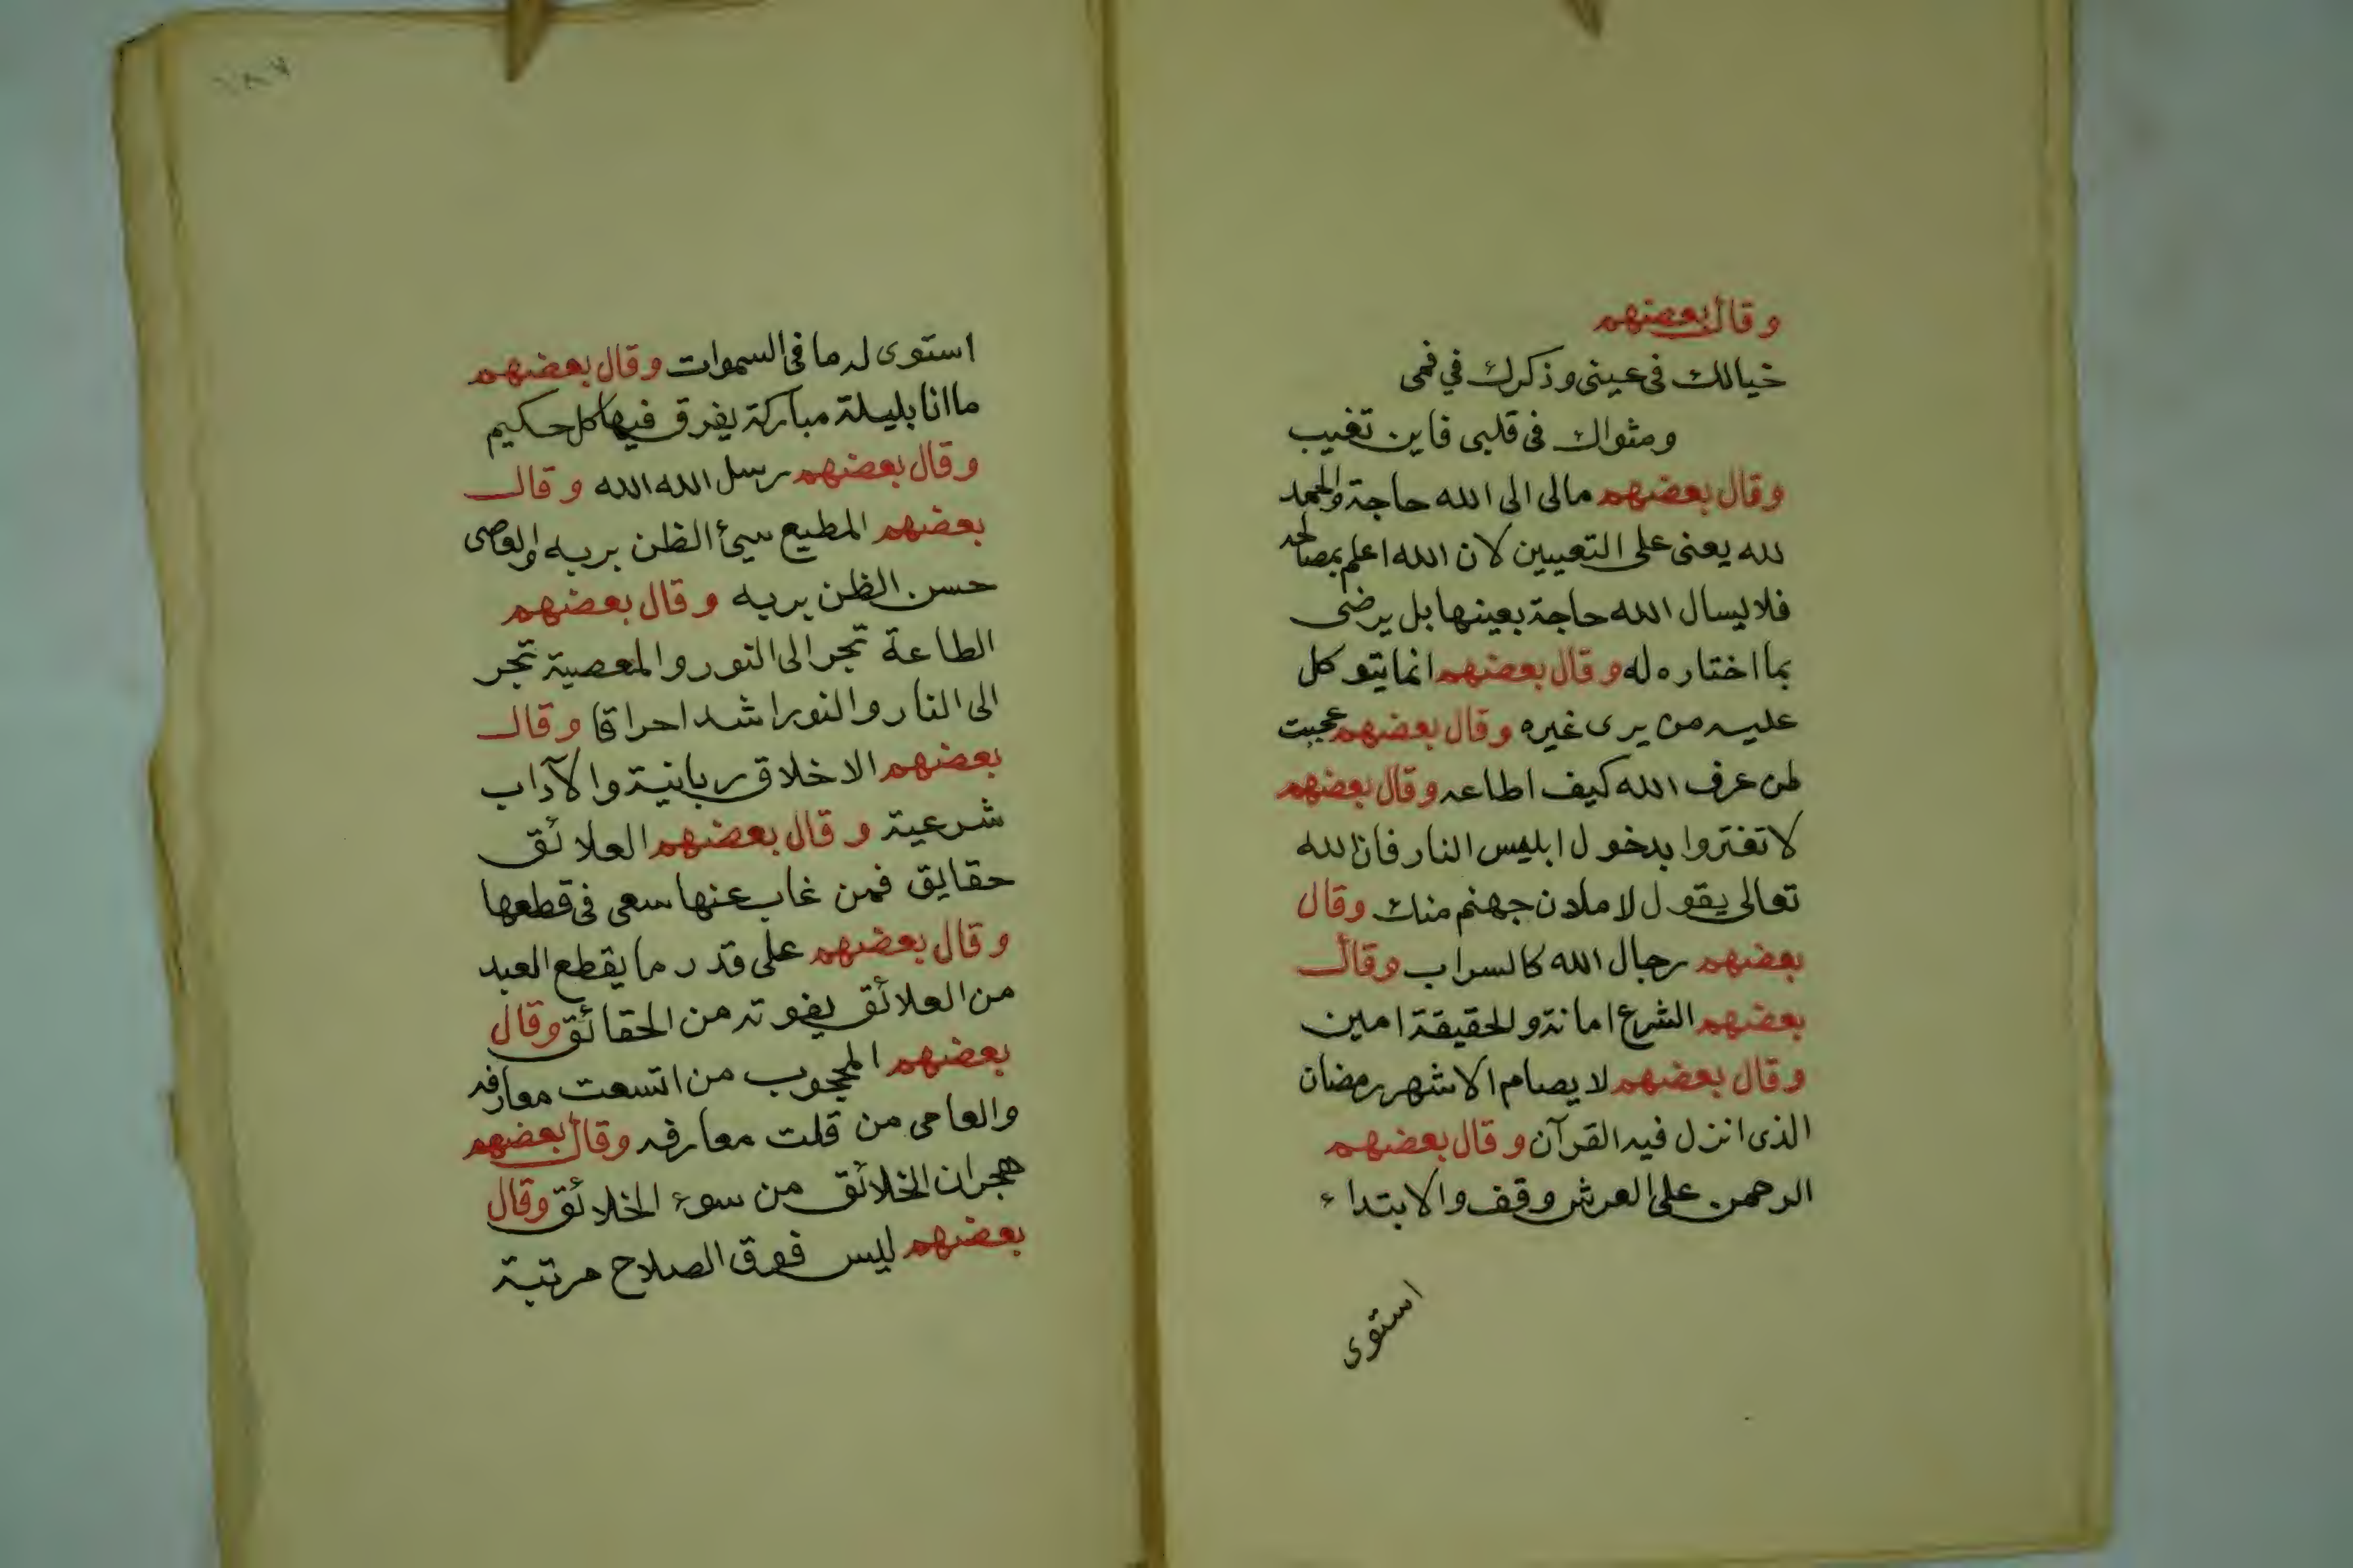 وقال بعضهم
خيالك فى عينى وذكرك في فمى
ومثواك فى قلبى فاين تغيب
وقال بعضهم مالى الى الله حاجة والحمد
لله يعنى على التعيين لان الله اعلم بمصالحه
فلا يسال الله حاجة بعينها بل يرضى
بما اختاره له وقال بعضهم انما يتوكل
عليه من يرى غيره وقال بعضهم عجبت
لمن عرف الله كيف اطاعه وقال بعضهم
لا تغتروا بدخول ابليس النار فان الله
تعالى يقول لاملان جهنم منك وقال
بعضهم رجال الله كالسراب وقال
بعضهم الشرع امانة والحقيقة امين
وقال بعضهم لا يصام الا شهر رمضان
الذى انزل فيه القرآن وقال بعضهم
الرحمن على العرش وقف والابتداء
استوى
١٨٧
استوى له ما فى السموات وقال بعضهم
ما انا بليلة مباركة يفرق فيها كل حكيم
وقال بعضهم رسل الله الله وقال
بعضهم المطيع سيئ الظن بربه والعاصى
حسن الظن بربه وقال بعضهم
الطاعة تجر الى النور والمعصية تجر
الى النار والنور اشد احراقا وقال
بعضهم الاخلاق ربانية والآداب
شرعية وقال بعضهم العلائق
حقايق فمن غاب عنها سعى فى قطعها
وقال بعضهم على قدر ما يقطع العبد
من العلائق يفوته من الحقائق وقال
بعضهم المحجوب من اتسعت معارفه
والعامى من قلت معارفه وقال بعضهم
هجران الخلائق من سوء الخلائق وقال
بعضهم ليس فوق الصلاح مرتبة